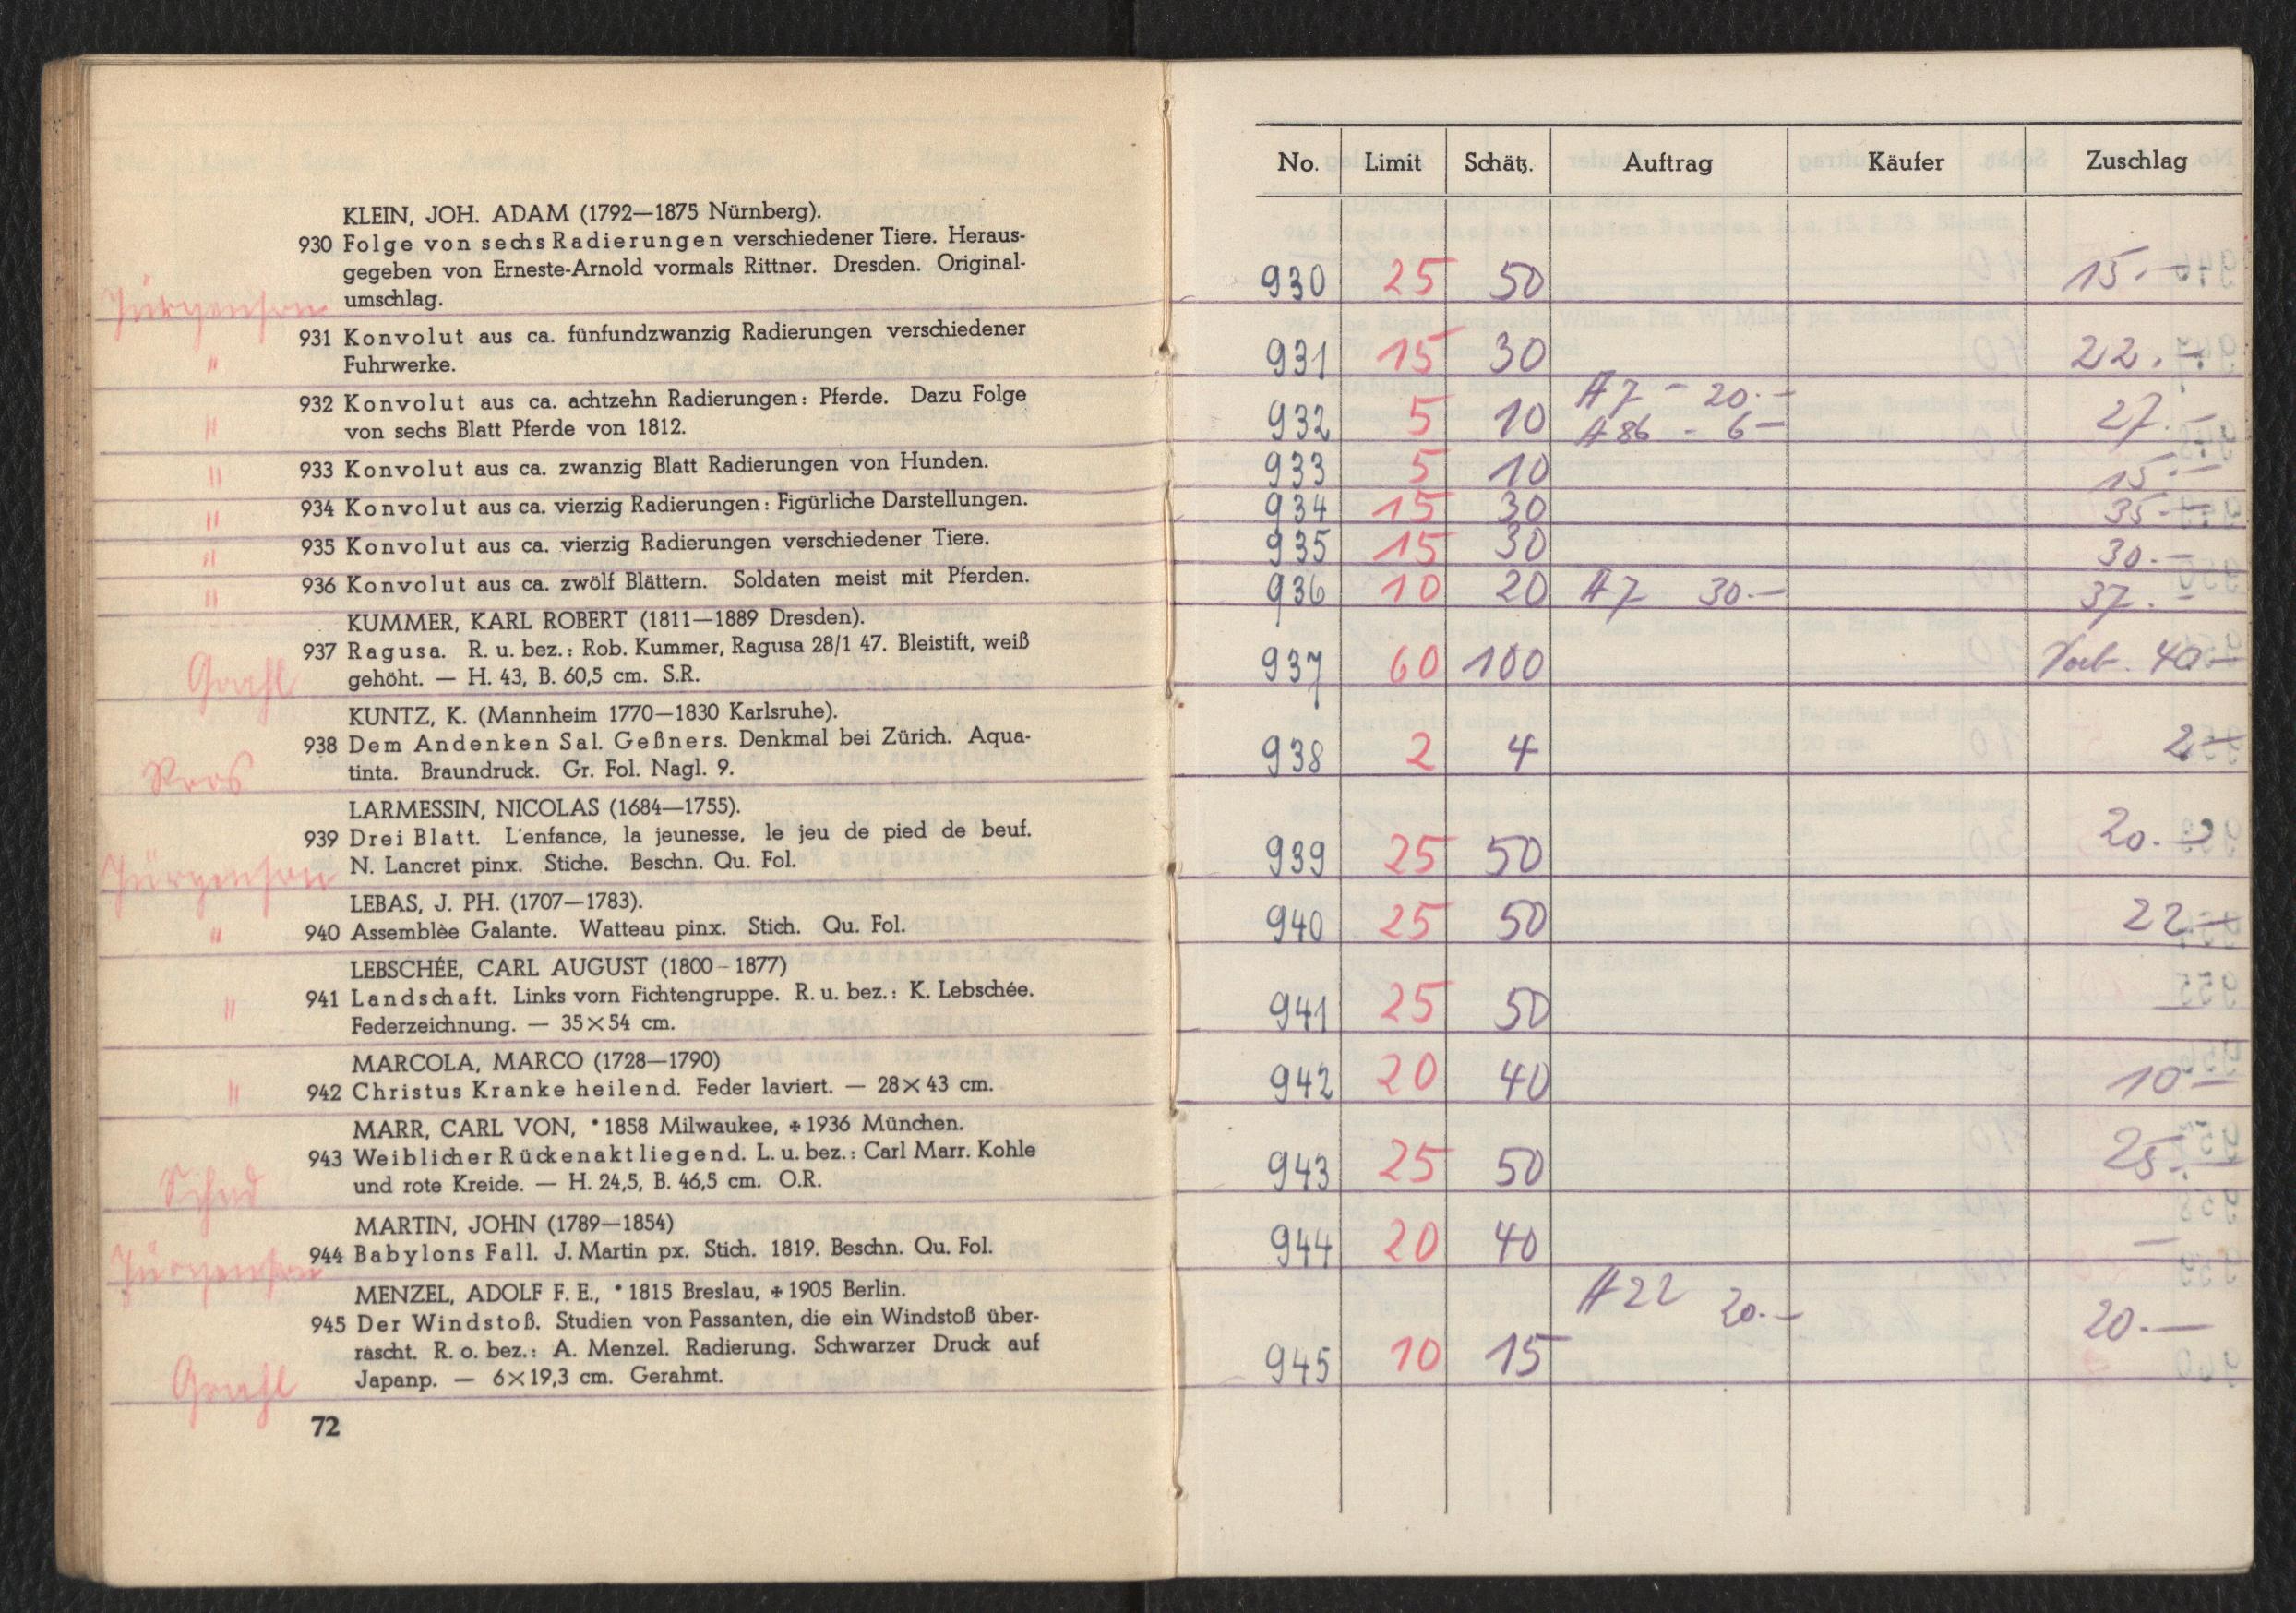 KLEIN, JOH. ADAM (1792—1875 Nürnberg).
930 Folge von sechs Radierungen verschiedener Tiere. Heraus-
gegeben von Erneste-Arnold vormals Rittner. Dresden. Original-
Jürgenson umschlag.
931 Konvolut aus ca. fünfundzwanzig Radierungen verschiedener
" Fuhrwerke.
932 Konvolut aus ca. achtzehn Radierungen: Pferde. Dazu Folge
" von sechs Blatt Pferde von 1812.
" 933 Konvolut aus ca. zwanzig Blatt Radierungen von Hunden.
" 934 Konvolut aus ca. vierzig Radierungen: Figürliche Darstellungen.
" 935 Konvolut aus ca. vierzig Radierungen verschiedener Tiere.
" 936 Konvolut aus ca. zwölf Blättern. Soldaten meist mit Pferden.
KUMMER, KARL ROBERT (1811—1889 Dresden).
937 Ragusa. R. u. bez.: Rob. Kummer, Ragusa 28/1 47. Bleistift, weiß
Grahl gehöht. — H. 43, B. 60,5 cm. S.R.
KUNTZ, K. (Mannheim 1770—1830 Karlsruhe).
938 Dem Andenken Sal. Geßners. Denkmal bei Zürich. Aqua-
tinta. Braundruck. Gr. Fol. Nagl. 9.
LARMESSIN, NICOLAS (1684—1755).
939 Drei Blatt. L'enfance, la jeunesse, le jeu de pied de beuf.
Jürgenson N. Lancret pinx. Stiche. Beschn. Qu. Fol.
LEBAS, J. PH. (1707—1783).
" 940 Assemblèe Galante. Watteau pinx. Stich. Qu. Fol.
LEBSCHÉE, CARL AUGUST (1800–1877)
" 941 Landschaft. Links vorn Fichtengruppe. R. u. bez.: K. Lebschée.
Federzeichnung. — 35×54 cm.
MARCOLA, MARCO (1728—1790)
" 942 Christus Kranke heilend. Feder laviert. — 28×43 cm.
MARR, CARL VON, * 1858 Milwaukee, + 1936 München.
943 Weiblicher Rückenakt liegend. L. u. bez.: Carl Marr. Kohle
und rote Kreide. — H. 24,5, B. 46,5 cm. O.R.
MARTIN, JOHN (1789—1854)
Jürgenson 944 Babylons Fall. J. Martin px. Stich. 1819. Beschn. Qu. Fol.
MENZEL, ADOLF F. E., * 1815 Breslau, + 1905 Berlin.
945 Der Windstoß. Studien von Passanten, die ein Windstoß über-
rascht. R. o. bez.: A. Menzel. Radierung. Schwarzer Druck auf
Grahl Japanp. — 6×19,3 cm. Gerahmt.
72
No. Limit Schätz. Auftrag Käufer Zuschlag
930 25 50 15.—
931 15 30 22.—
932 5 10 A 7 – 20.— 27.—
A 86 – 6—
933 5 10 15.—
934 15 30 35.—
935 15 30 30.—
936 10 20 A 7 30.— 37.—
937 60 100 40—
938 2 4 2—
939 25 50 20.—
940 25 50 22—
941 25 50
942 20 40 10—
943 25 50 25.—
944 20 40 —
945 10 15 A 22 20.— 20.—